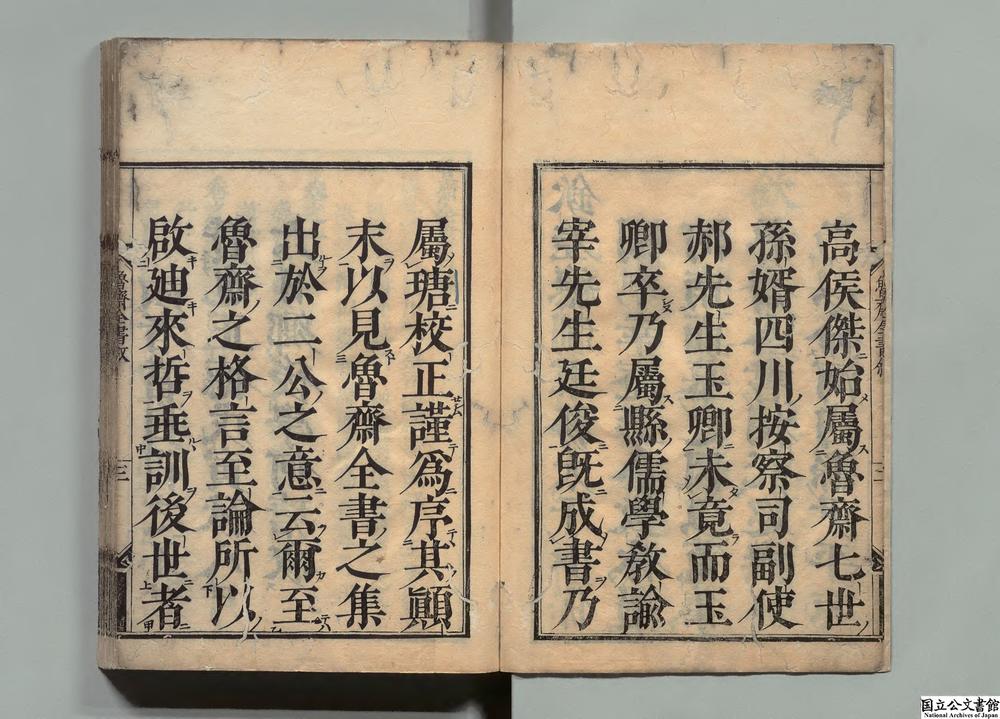 高侯傑始屬魯齋七世
孫婿四川按察司副使
郝先生玉卿未竟而玉
卿卒乃屬縣儒學教諭
宰先生廷俊旣成書乃
屬瑭校正謹爲序其顚
末以見魯齋全書之集
出於二公之意云爾至
魯齋之格言至論所以
啟廸來哲垂訓後世者
魯齋全書叙
三
国立公文書館
National Archives of Japan